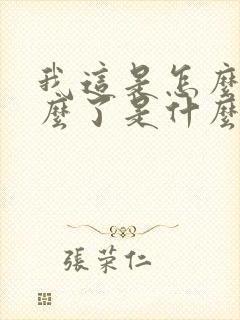 我這是怎麼
麼了是什麼
張荣仁